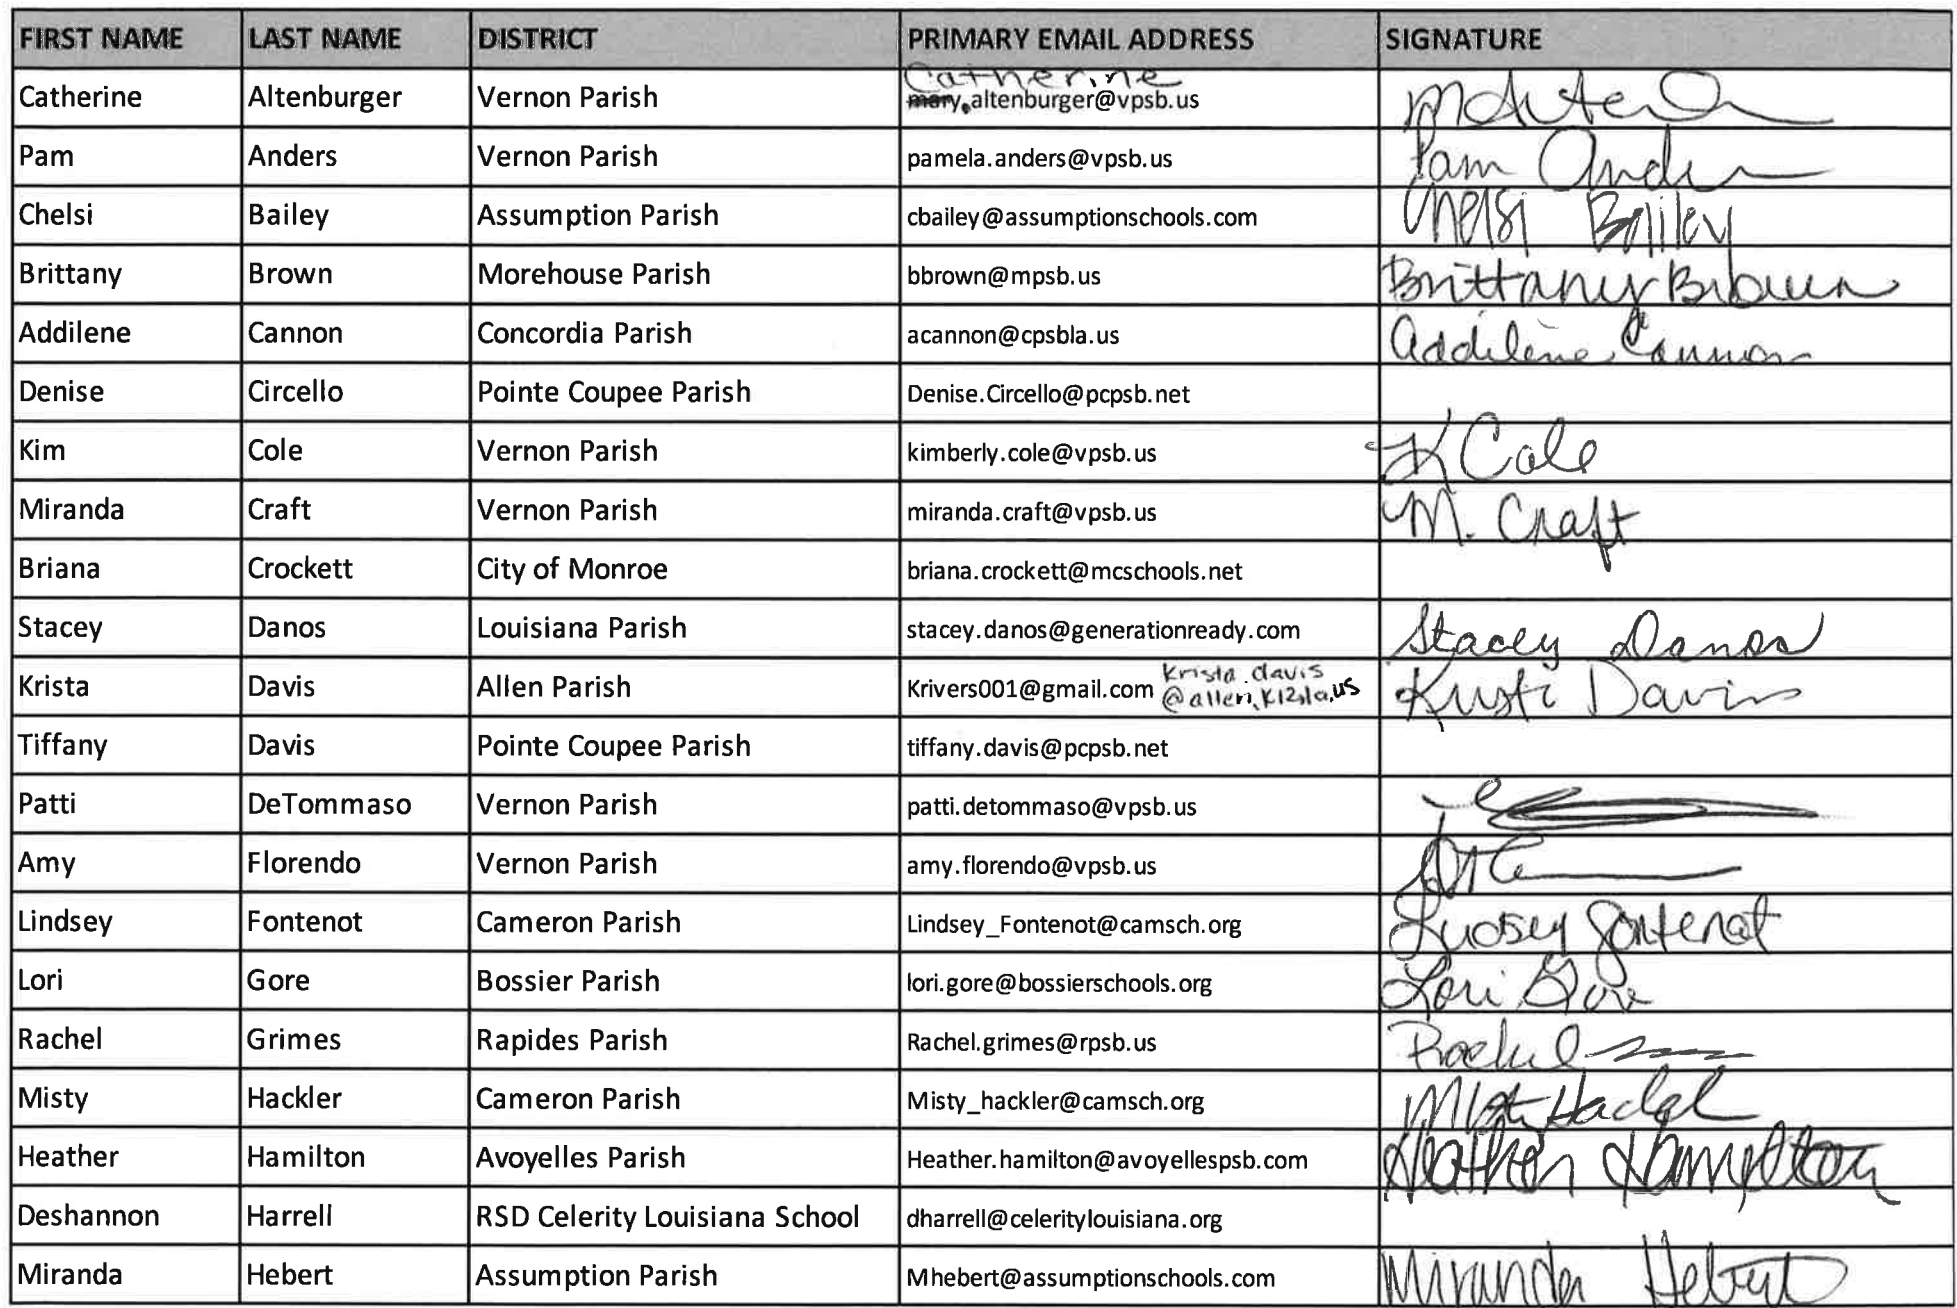 FIRST NAME LAST NAME DISTRICT PRIMARY EMAIL ADDRESS SIGNATURE
Catherine
Catherine Altenburger Vernon Parish mary.altenburger@vpsb.us
Pam Anders Vernon Parish pamela.anders@vpsb.us Pam Anders
Chelsi Bailey Assumption Parish cbailey@assumptionschools.com Chelsi Bailey
Brittany Brown Morehouse Parish bbrown@mpsb.us Brittany Brown
Addilene Cannon Concordia Parish acannon@cpsbla.us Addilene Cannon
Denise Circello Pointe Coupee Parish Denise.Circello@pcpsb.net
Kim Cole Vernon Parish kimberly.cole@vpsb.us K Cole
Miranda Craft Vernon Parish miranda.craft@vpsb.us M. Craft
Briana Crockett City of Monroe briana.crockett@mcschools.net
Stacey Danos Louisiana Parish stacey.danos@generationready.com Stacey Danos
Krista Davis Allen Parish Krivers001@gmail.com krista.davis @allen.k12.la.us Kristi Davis
Tiffany Davis Pointe Coupee Parish tiffany.davis@pcpsb.net
Patti DeTommaso Vernon Parish patti.detommaso@vpsb.us
Amy Florendo Vernon Parish amy.florendo@vpsb.us
Lindsey Fontenot Cameron Parish Lindsey_Fontenot@camsch.org Lindsey Fontenot
Lori Gore Bossier Parish lori.gore@bossierschools.org Lori Gore
Rachel Grimes Rapides Parish Rachel.grimes@rpsb.us Rachel
Misty Hackler Cameron Parish Misty_hackler@camsch.org Misty Hackler
Heather Hamilton Avoyelles Parish Heather.hamilton@avoyellespsb.com Heather Hamilton
Deshannon Harrell RSD Celerity Louisiana School dharrell@celeritylouisiana.org
Miranda Hebert Assumption Parish Mhebert@assumptionschools.com Miranda Hebert